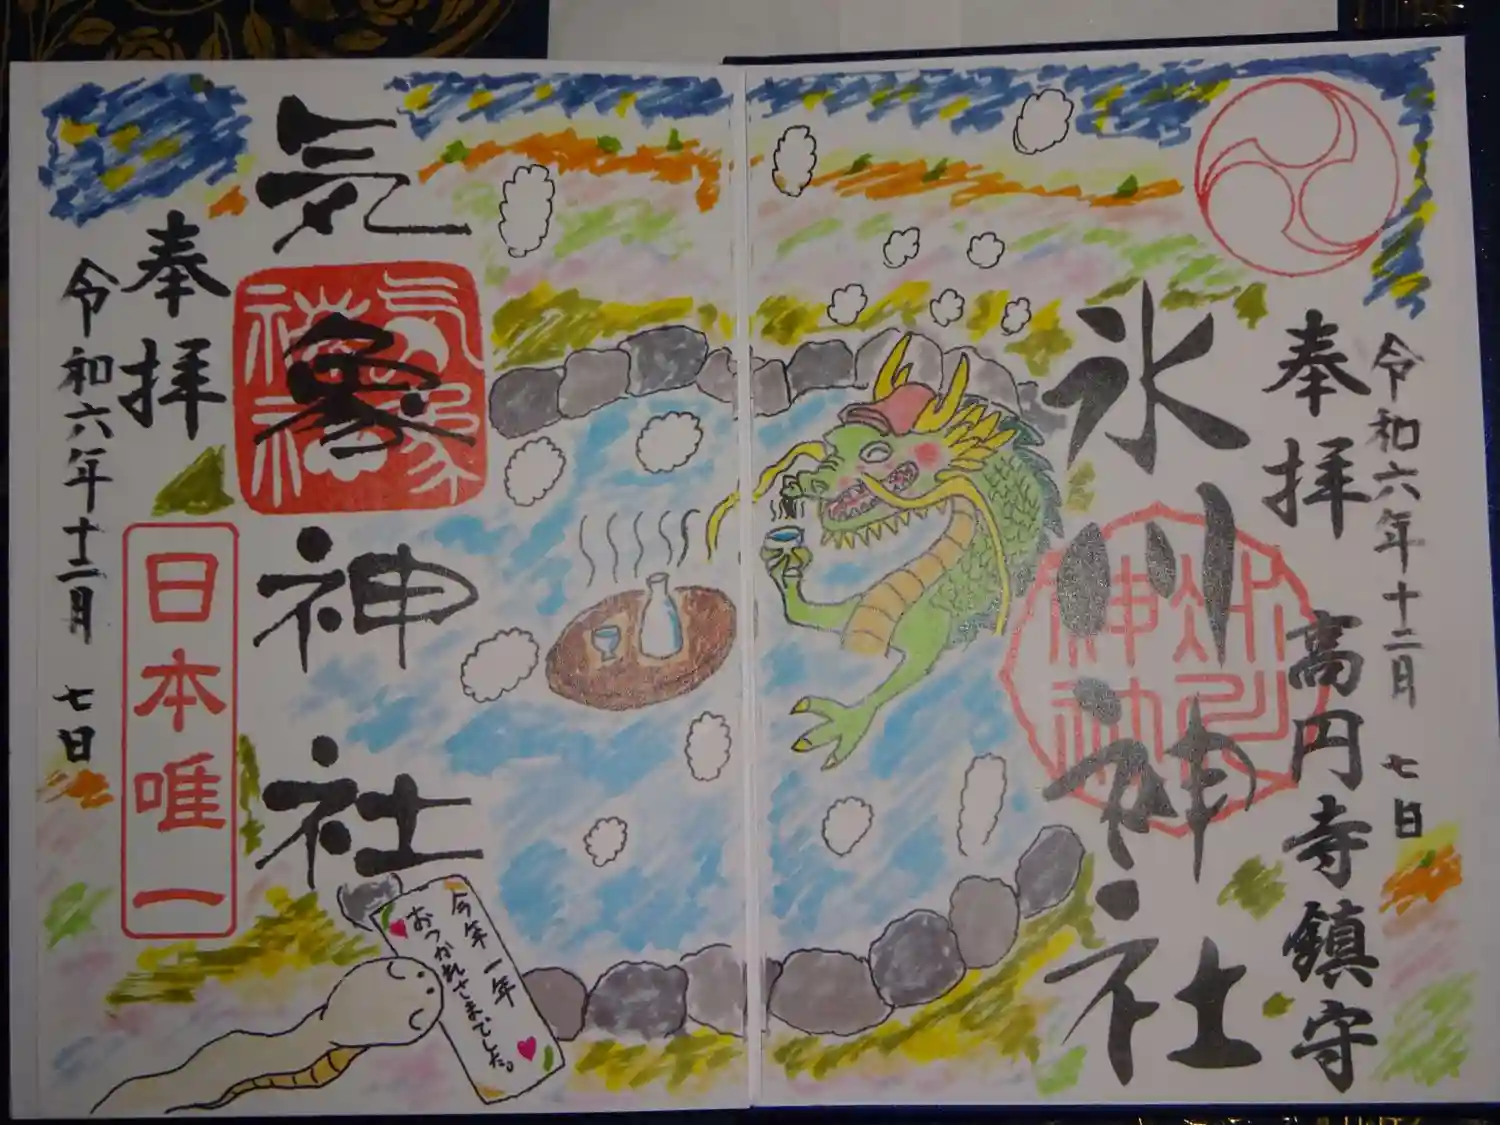 令和六年十二月 七日
奉拝
高円寺鎮守
氷川神社
気象神社
気象
神社
奉拝
日本唯一
令和六年十二月 七日
今年一年
おつかれさまでした。